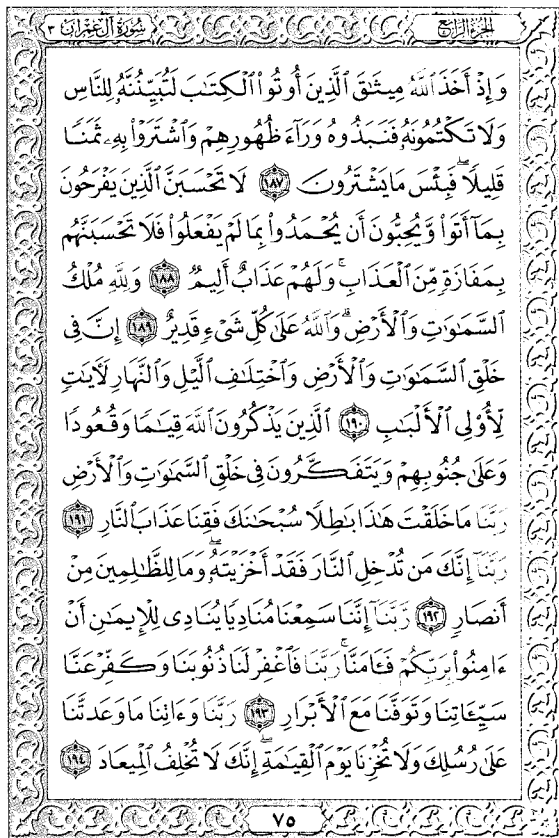 سُورَةُ آلِ عِمْرَان ٣
الجُزْءُ الرَّابِعُ
وَإِذْ أَخَذَ ٱللَّهُ مِيثَٰقَ ٱلَّذِينَ أُوتُوا۟ ٱلْكِتَٰبَ لَتُبَيِّنُنَّهُۥ لِلنَّاسِ
وَلَا تَكْتُمُونَهُۥ فَنَبَذُوهُ وَرَآءَ ظُهُورِهِمْ وَٱشْتَرَوْا۟ بِهِۦ ثَمَنًا
قَلِيلًا ۖ فَبِئْسَ مَا يَشْتَرُونَ ١٨٧ لَا تَحْسَبَنَّ ٱلَّذِينَ يَفْرَحُونَ
بِمَآ أَتَوا۟ وَّيُحِبُّونَ أَن يُحْمَدُوا۟ بِمَا لَمْ يَفْعَلُوا۟ فَلَا تَحْسَبَنَّهُم
بِمَفَازَةٍ مِّنَ ٱلْعَذَابِ ۖ وَلَهُمْ عَذَابٌ أَلِيمٌ ١٨٨ وَلِلَّهِ مُلْكُ
ٱلسَّمَٰوَٰتِ وَٱلْأَرْضِ ۗ وَٱللَّهُ عَلَىٰ كُلِّ شَىْءٍ قَدِيرٌ ١٨٩ إِنَّ فِى
خَلْقِ ٱلسَّمَٰوَٰتِ وَٱلْأَرْضِ وَٱخْتِلَٰفِ ٱلَّيْلِ وَٱلنَّهَارِ لَءَايَٰتٍ
لِّأُو۟لِى ٱلْأَلْبَٰبِ ١٩٠ ٱلَّذِينَ يَذْكُرُونَ ٱللَّهَ قِيَٰمًا وَقُعُودًا
وَعَلَىٰ جُنُوبِهِمْ وَيَتَفَكَّرُونَ فِى خَلْقِ ٱلسَّمَٰوَٰتِ وَٱلْأَرْضِ
رَبَّنَا مَا خَلَقْتَ هَٰذَا بَٰطِلًا سُبْحَٰنَكَ فَقِنَا عَذَابَ ٱلنَّارِ ١٩١
رَبَّنَآ إِنَّكَ مَن تُدْخِلِ ٱلنَّارَ فَقَدْ أَخْزَيْتَهُۥ ۖ وَمَا لِلظَّٰلِمِينَ مِنْ
أَنصَارٍ ١٩٢ رَّبَّنَآ إِنَّنَا سَمِعْنَا مُنَادِيًا يُنَادِى لِلْإِيمَٰنِ أَنْ
ءَامِنُوا۟ بِرَبِّكُمْ فَـَٔامَنَّا ۚ رَبَّنَا فَٱغْفِرْ لَنَا ذُنُوبَنَا وَكَفِّرْ عَنَّا
سَيِّـَٔاتِنَا وَتَوَفَّنَا مَعَ ٱلْأَبْرَارِ ١٩٣ رَبَّنَا وَءَاتِنَا مَا وَعَدتَّنَا
عَلَىٰ رُسُلِكَ وَلَا تُخْزِنَا يَوْمَ ٱلْقِيَٰمَةِ ۗ إِنَّكَ لَا تُخْلِفُ ٱلْمِيعَادَ ١٩٤
٧٥